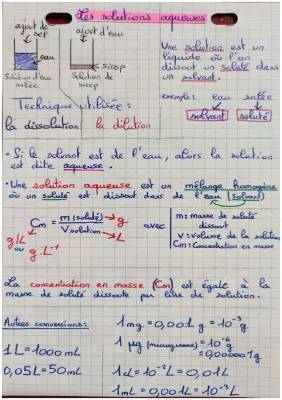 Les solutions aqueuses
ajout de sel
ajout d'eau
eau
sirop
Solution d'eau salée
Solution de sirop
Une solution est un liquide où l'on dissout un soluté dans un solvant.
exemple: eau salée
solvant soluté
Technique utilisée:
la dissolution la dilution
• Si le solvant est de l'eau, alors la solution est dite aqueuse.
• Une solution aqueuse est un mélange homogène où un soluté est dissout dans de l'eau (solvant)
Cm = m(soluté) / Vsolution
g
L
g/L ou g.L⁻¹
avec
m: masse de soluté dissout
V: volume de la solution
Cm: Concentration en masse
La concentration en masse (Cm) est égale à la masse de soluté dissoute par litre de solution.
Autres conversions:
1L = 1000mL
0,05L = 50mL
1mg = 0,001g = 10⁻³g
1µg (microgramme) = 10⁻⁶g = 0,000001g
1cL = 10⁻²L = 0,01L
1mL = 0,001L = 10⁻³L